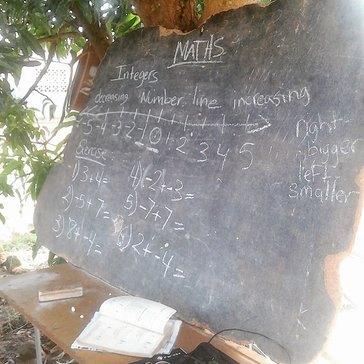 MATHS
Integers
decreasing Number line increasing
-5 -4 -3 -2 -1 0 1 2 3 4 5
right
bigger
left
smaller
Exercise
1) 3+4=
2) -5+7=
3) 8+-4=
4) -2+-3=
5) -7+7=
6) 2+-4=